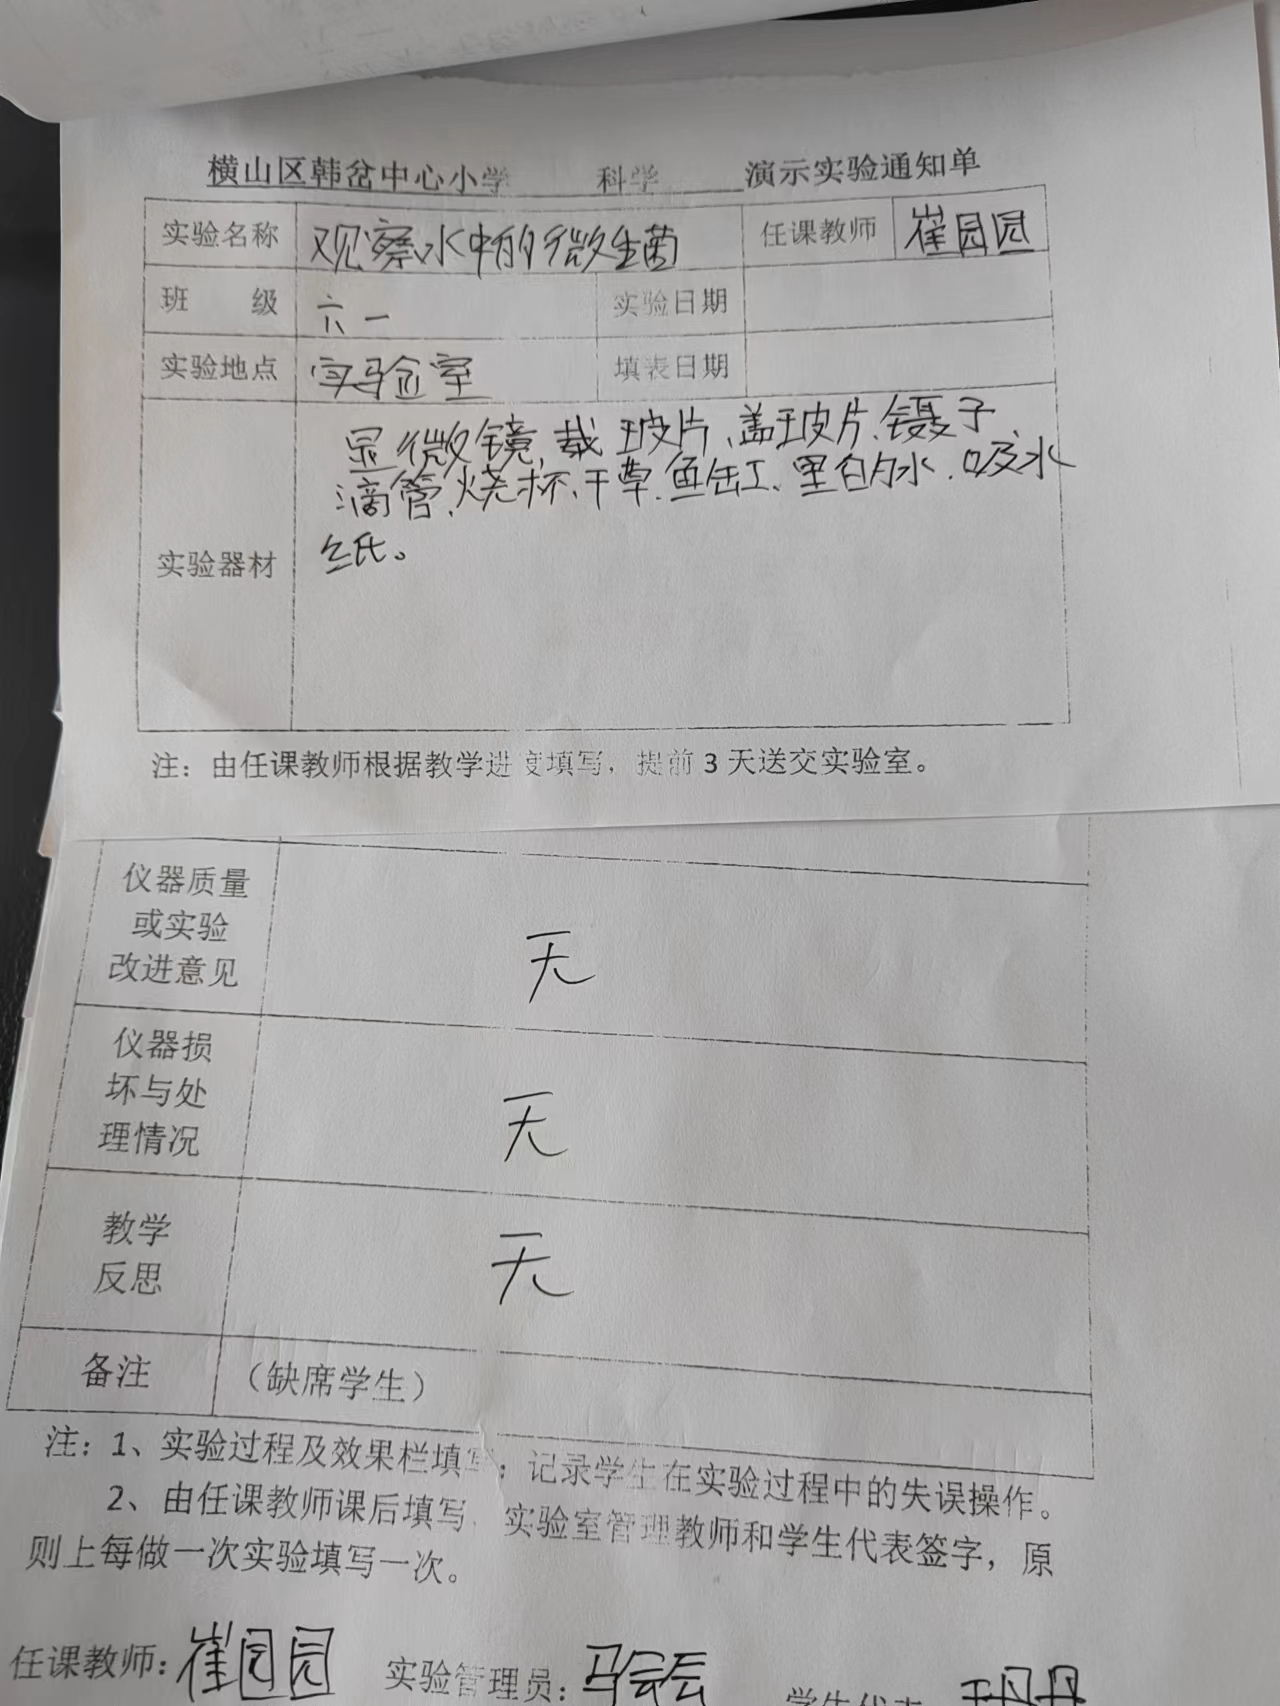 横山区韩岔中心小学 科学 演示实验通知单
实验名称 观察水中的微生菌 任课教师 崔园园
班 级 六一 实验日期
实验地点 实验室 填表日期
显微镜、载玻片、盖玻片、镊子、
滴管、烧杯、干草、鱼缸、里的水、吸水
纸。
实验器材
注：由任课教师根据教学进度填写，提前 3 天送交实验室。
仪器质量
或实验
改进意见
无
仪器损
坏与处
理情况
无
教学
反思
无
备注 （缺席学生）
注：1、实验过程及效果栏填写：记录学生在实验过程中的失误操作。
2、由任课教师课后填写，实验室管理教师和学生代表签字，原
则上每做一次实验填写一次。
任课教师：崔园园 实验管理员：马会会 学生代表